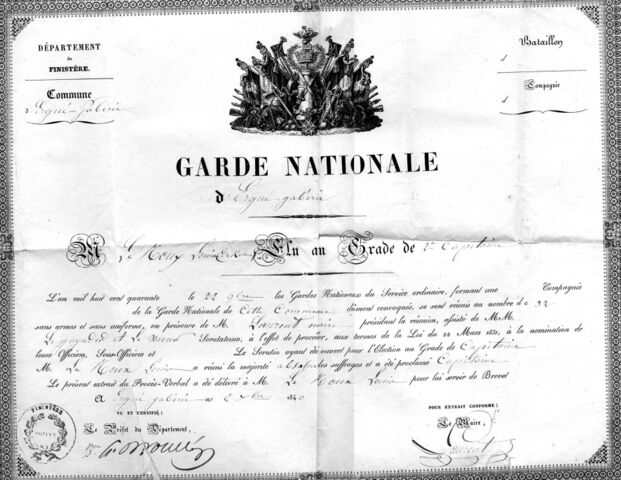 DÉPARTEMENT
du
FINISTÈRE.
Commune
d'Ergué-gabéric
Bataillon
d
Compagnie
d
GARDE NATIONALE
d'Ergué-gabéric
M Le Roux Louis Élu au Grade de Capitaine
L'an mil huit cent quarante le 22 9bre les Gardes Nationaux du Service ordinaire, formant une Compagnie
de la Garde Nationale de Cette Commune dûment convoqués, se sont réunis au nombre de 32
sans armes et sans uniforme, en présence de M. Laurent maire président la réunion, assisté de M.M.
Le et Le Scrutateurs, à l'effet de procéder, aux termes de la Loi du 22 Mars 1831, à la nomination de
leurs Officiers, Sous-Officiers et Le Scrutin ayant été ouvert pour l'Élection au Grade de Capitaine
M. Le Roux Louis a réuni la majorité absolue des suffrages et a été proclamé Capitaine
Le présent extrait du Procès-Verbal a été délivré à M. Le Roux Louis pour lui servir de Brevet
A Ergué gabéric le 2 Xbre 1840
VU ET CERTIFIÉ:
Le Préfet du Département,
POUR EXTRAIT CONFORME:
Le Maire,
Laurent
FINISTÈRE